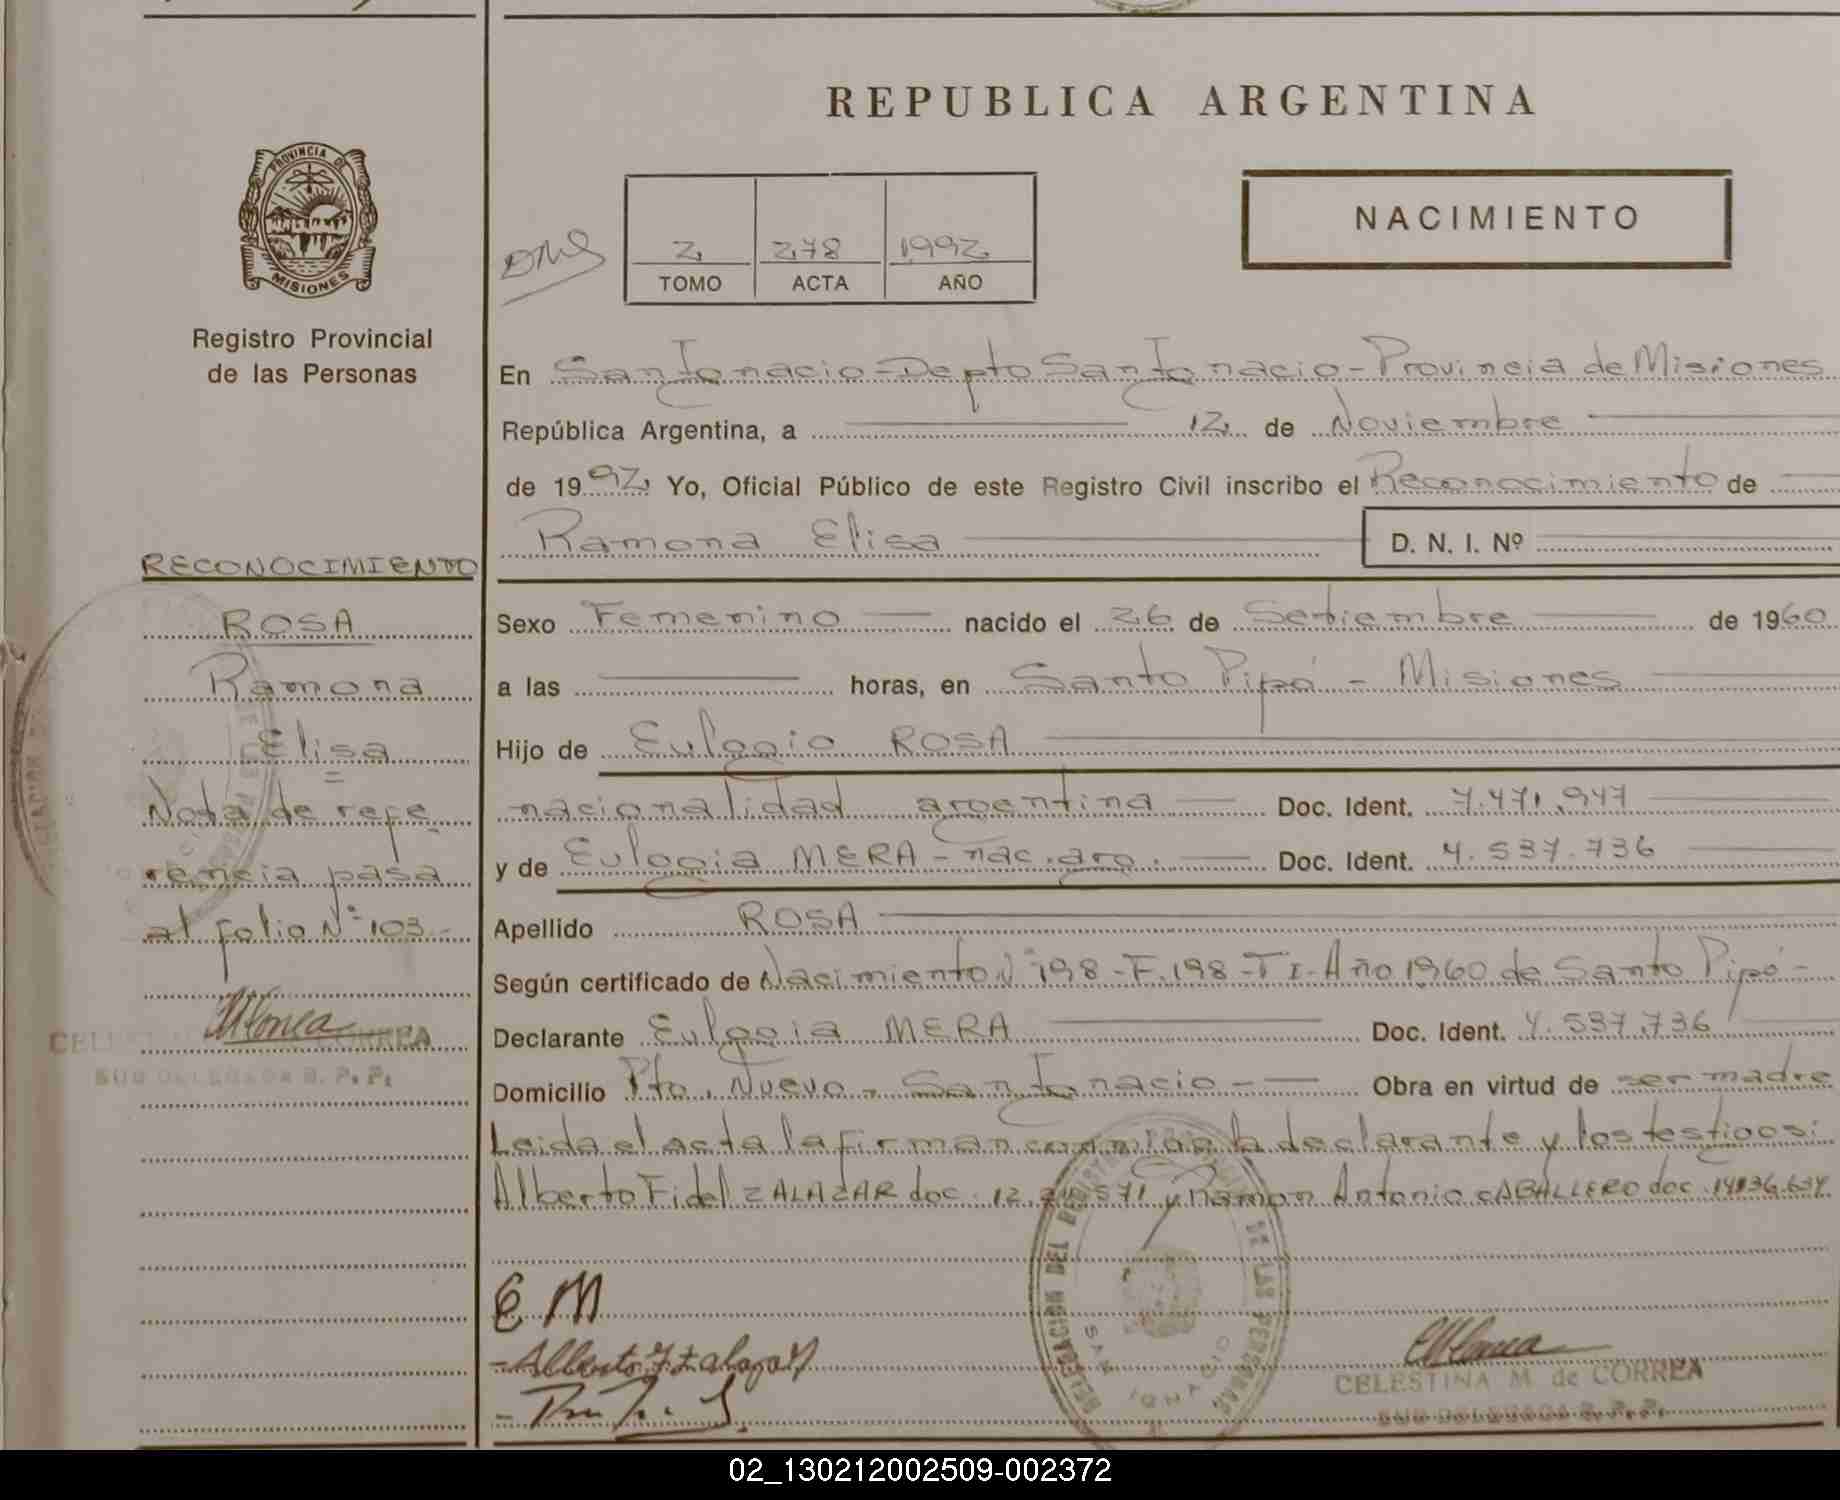 REPUBLICA ARGENTINA
PROVINCIA DE
MISIONES
Registro Provincial
de las Personas
2 278 1992
TOMO ACTA AÑO
NACIMIENTO
En San Ignacio - Depto San Ignacio - Provincia de Misiones
República Argentina, a 12 de Noviembre
de 1992 Yo, Oficial Público de este Registro Civil inscribo el Reconocimiento de
Ramona Elisa D. N. I. Nº
RECONOCIMIENTO
ROSA
Ramona
Elisa
Nota de refe
rencia pasa
al folio Nº 103
CORREA
SUB DELEGADA R. P. P.
Sexo Femenino nacido el 26 de Setiembre de 1960
a las horas, en Santo Pipó - Misiones
Hijo de Eulogio ROSA
nacionalidad argentina Doc. Ident. 7.471.947
y de Eulogia MERA - nac. arg. Doc. Ident. 4.537.736
Apellido ROSA
Según certificado de Nacimiento Nº 198 - F. 198 - T I - Año 1960 de Santo Pipó -
Declarante Eulogia MERA Doc. Ident. 4.537.736
Domicilio Pto. Nuevo - San Ignacio - Obra en virtud de ser madre
Leida el acta la firman conmigo la declarante y los testigos:
Alberto Fidel ZALAZAR doc. 12. 571 y Ramon Antonio CABALLERO doc.
E M
Alberto F Zalazar
DELEGACION DEL REGISTRO DE LAS PERSONAS
SAN IGNACIO
CELESTINA M. de CORREA
SUB DELEGADA R. P. P.
02_130212002509-002372